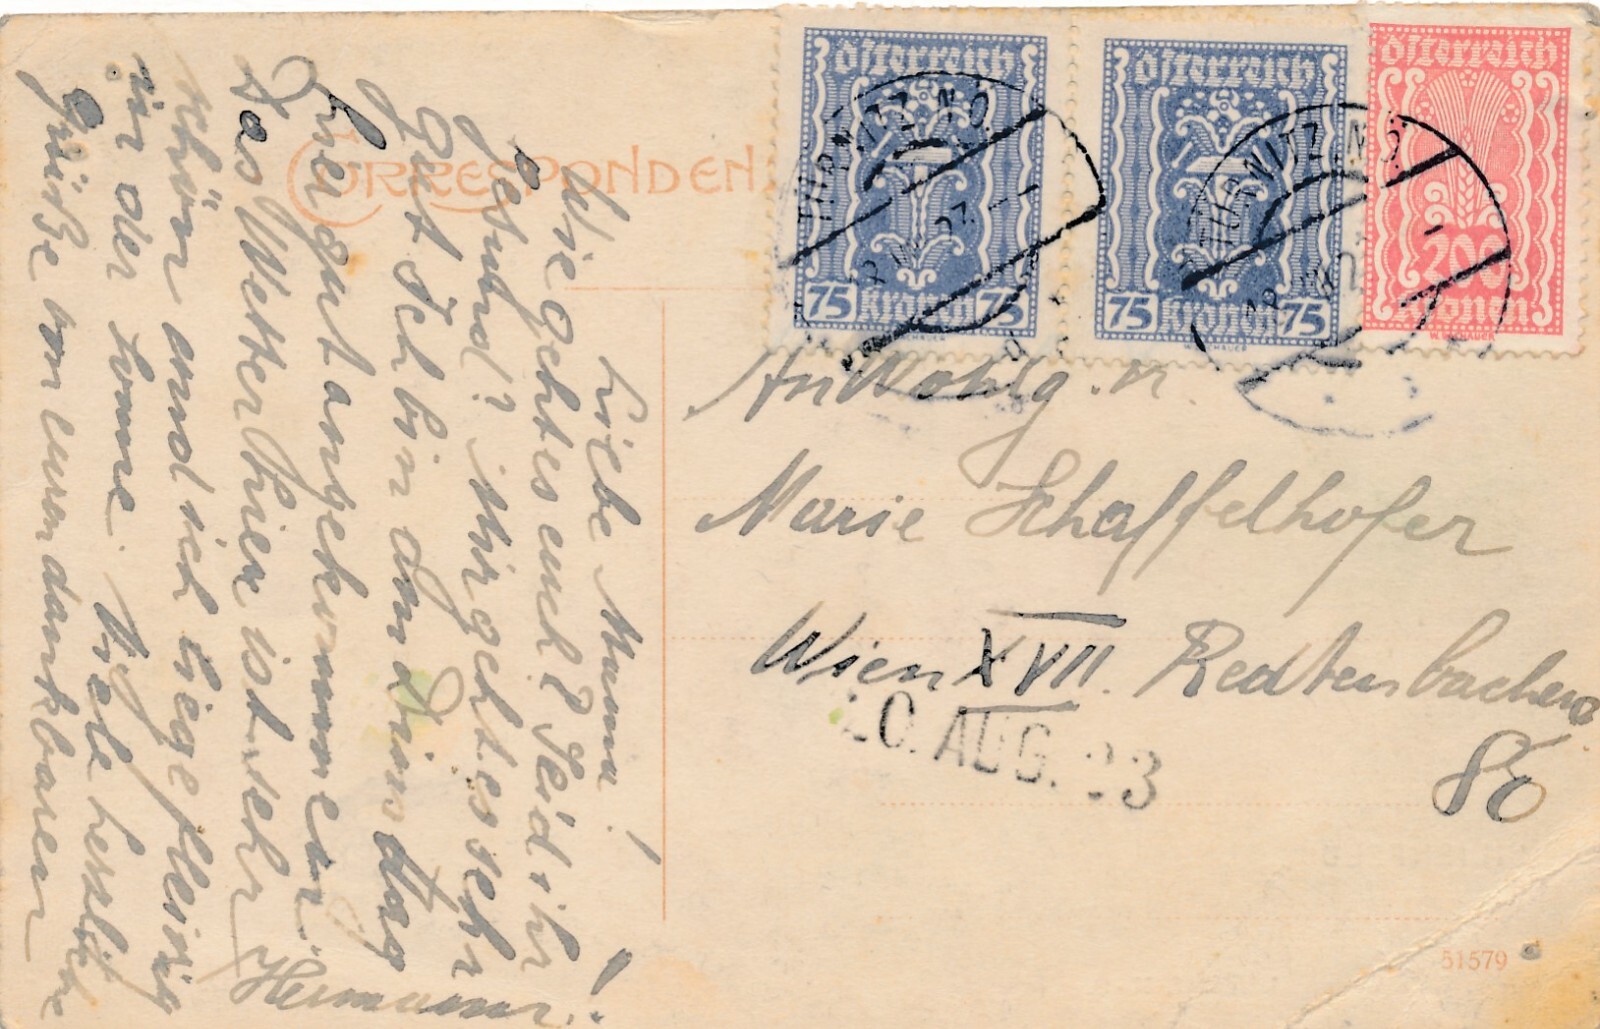 CORRESPONDEN
Österreich
75 Kronen 75
Österreich
75 Kronen 75
Österreich
200
Kronen
THRNITZ N.Ö.
TÜRNITZ N.Ö.
Liebe Mama!
Wie geht es euch? Seid ihr
gesund? Mir geht es sehr
gut. Ich bin am Dinstag
hier gut angekommen
Das Wetter hier ist sehr
schön und ich liege fleisig
in der Sonne. Viele herzliche
Grüße von euren dankbaren
Hermann!
An Wohlg.
Marie Schaffelhofer
Wien XVII. Redtenbacherg
80
20. AUG. 23
51579